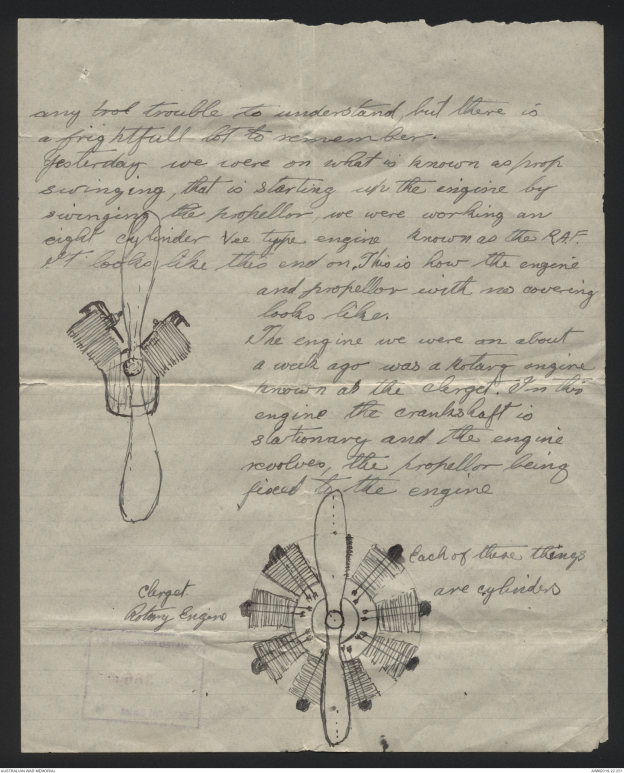 any trouble to understand, but there is
a frightfull lot to remember.
Yesterday we were on what is known as prop
swinging, that is starting up the engine by
swinging the propellor, we were working an
eight cylinder Vee type engine known as the RAF.
It looks like this end on, This is how the engine
and propellor with no covering
looks like.
The engine we were on about
a week ago was a Rotary engine
known as the Clerget. In this
engine the crankshaft is
stationary and the engine
revolves, the propellor being
fixed to the engine
Each of these things
are cylinders
Clerget
Rotary Engine
AUSTRALIAN WAR MEMORIAL